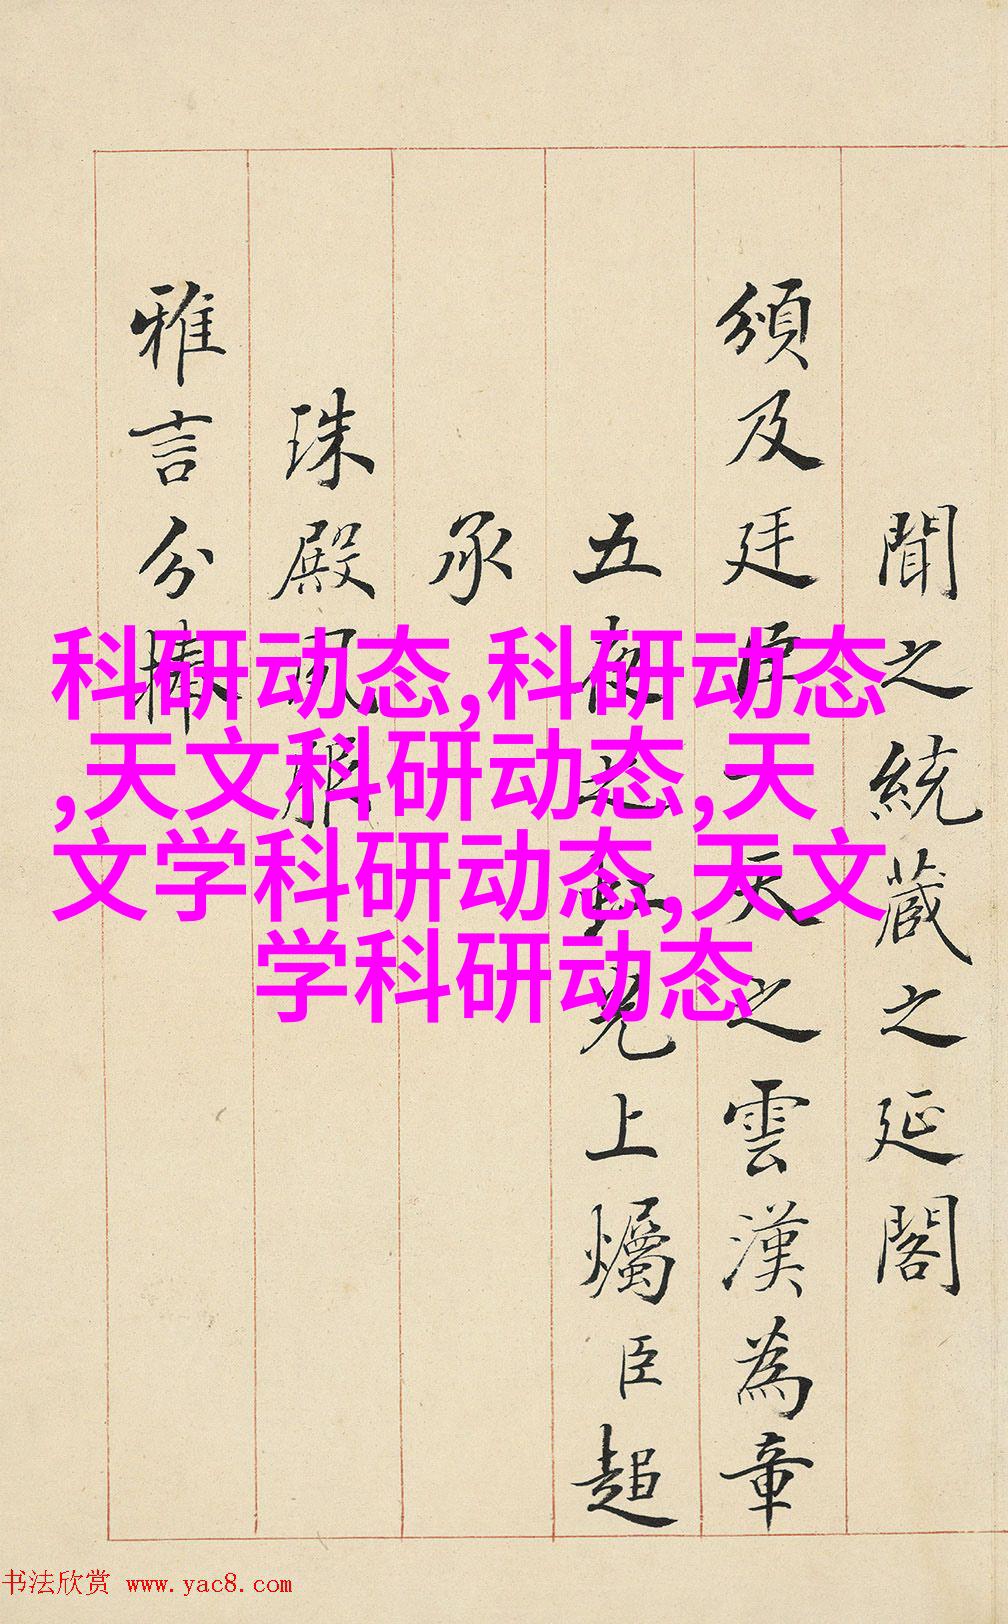 聞之統蔵之延閣
頒及廷臣一天之雲漢為章
五夜光虹見上爥臣超
承
珠殿
雅言分
科研动态,科研动态
,天文科研动态,天
文学科研动态,天文
学科研动态
书法欣赏 www.yac8.com